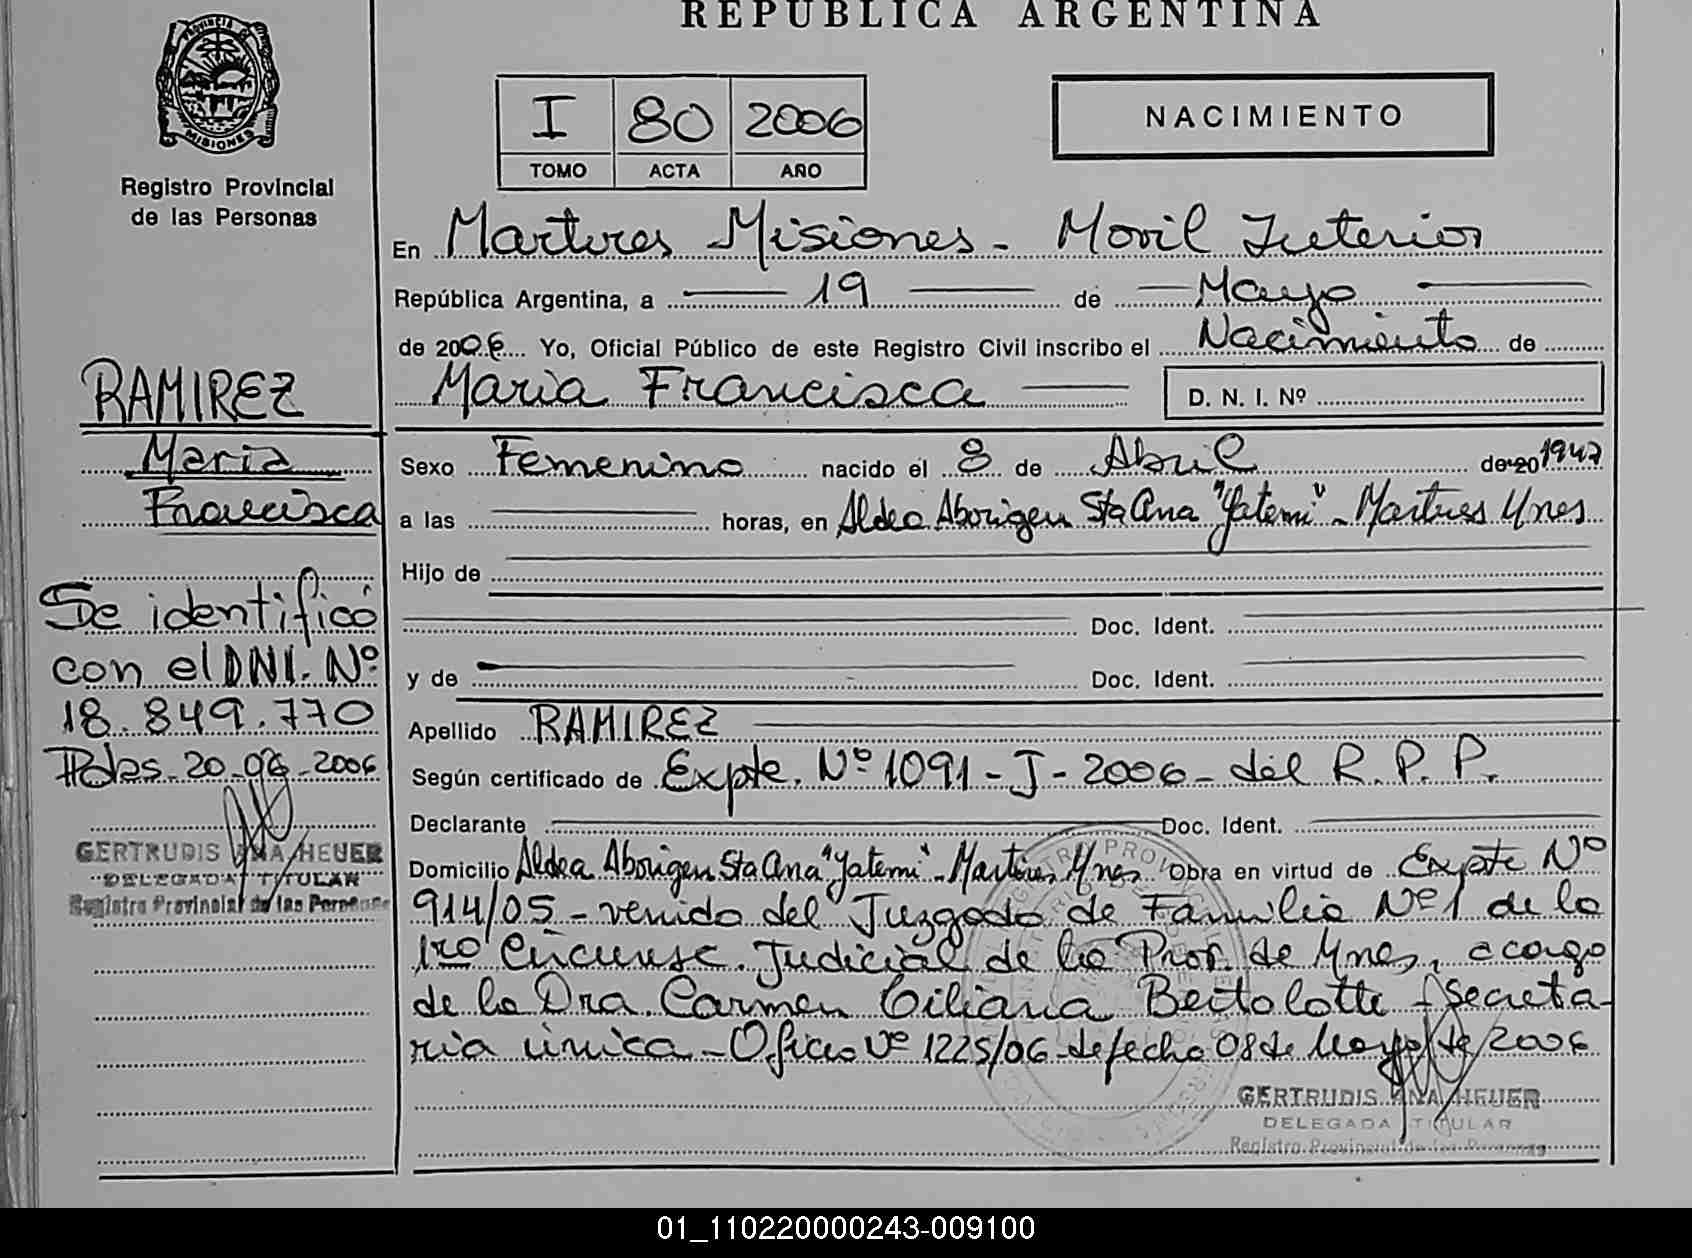 REPUBLICA ARGENTINA
PROVINCIA DE
MISIONES
Registro Provincial
de las Personas
I 80 2006
TOMO ACTA AÑO
NACIMIENTO
En Martires Misiones - Movil Interior
República Argentina, a 19 de Mayo
de 2006 Yo, Oficial Público de este Registro Civil inscribo el Nacimiento de
Maria Francisca D. N. I. Nº
Sexo Femenino nacido el 8 de Abril de 20 1947
a las horas, en Aldea Aborigen Sta Ana "Yatemi" - Martires Mnes
Hijo de
Doc. Ident.
y de Doc. Ident.
Apellido RAMIREZ
Según certificado de Expte. Nº 1091 - J - 2006 - del R. P. P.
Declarante Doc. Ident.
Domicilio Aldea Aborigen Sta Ana "Yatemi" - Martires Mnes Obra en virtud de Expte Nº
914/05 - venido del Juzgado de Familia Nº 1 de la
1ra Circunsc. Judicial de la Prov. de Mnes, a cargo
de la Dra. Carmen Liliana Bertolotti - Secreta-
ria única - Oficio Nº 1225/06 - de fecha 08 de Mayo de 2006
GERTRUDIS ANA HEUER
DELEGADA TITULAR
Registro Provincial de las Personas
RAMIREZ
Maria
Francisca
Se identificó
con el DNI. Nº
18.849.770
Pdas. 20-06-2006
GERTRUDIS ANA HEUER
DELEGADA TITULAR
Registro Provincial de las Personas
01_110220000243-009100